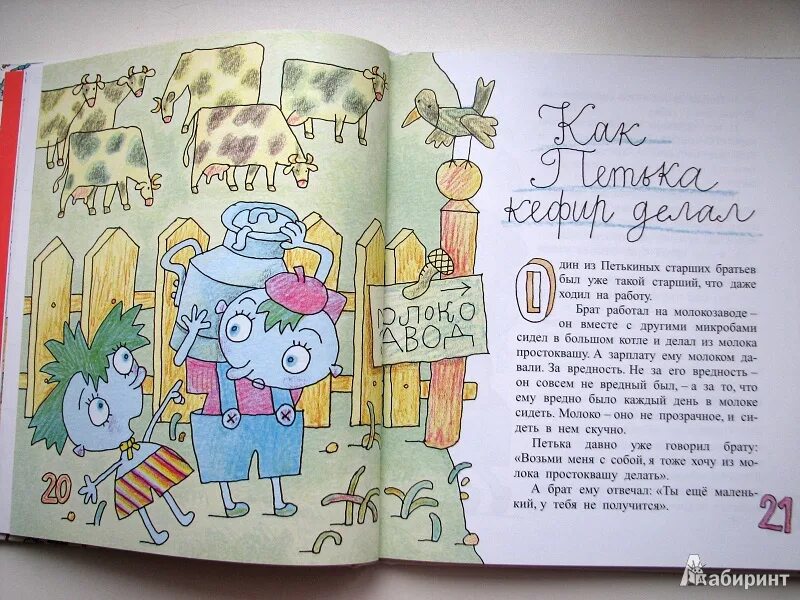 Как
Петька
кефир делал
Один из Петькиных старших братьев
был уже такой старший, что даже
ходил на работу.
Брат работал на молокозаводе –
он вместе с другими микробами
сидел в большом котле и делал из молока
простоквашу. А зарплату ему молоком да-
вали. За вредность. Не за его вредность –
он совсем не вредный был, – а за то, что
ему вредно было каждый день в молоке
сидеть. Молоко – оно не прозрачное, и си-
деть в нем скучно.
Петька давно уже говорил брату:
«Возьми меня с собой, я тоже хочу из мо-
лока простоквашу делать».
А брат ему отвечал: «Ты ещё малень-
кий, у тебя не получится».
ОЛОКО
АВОД
20
21
Лабиринт